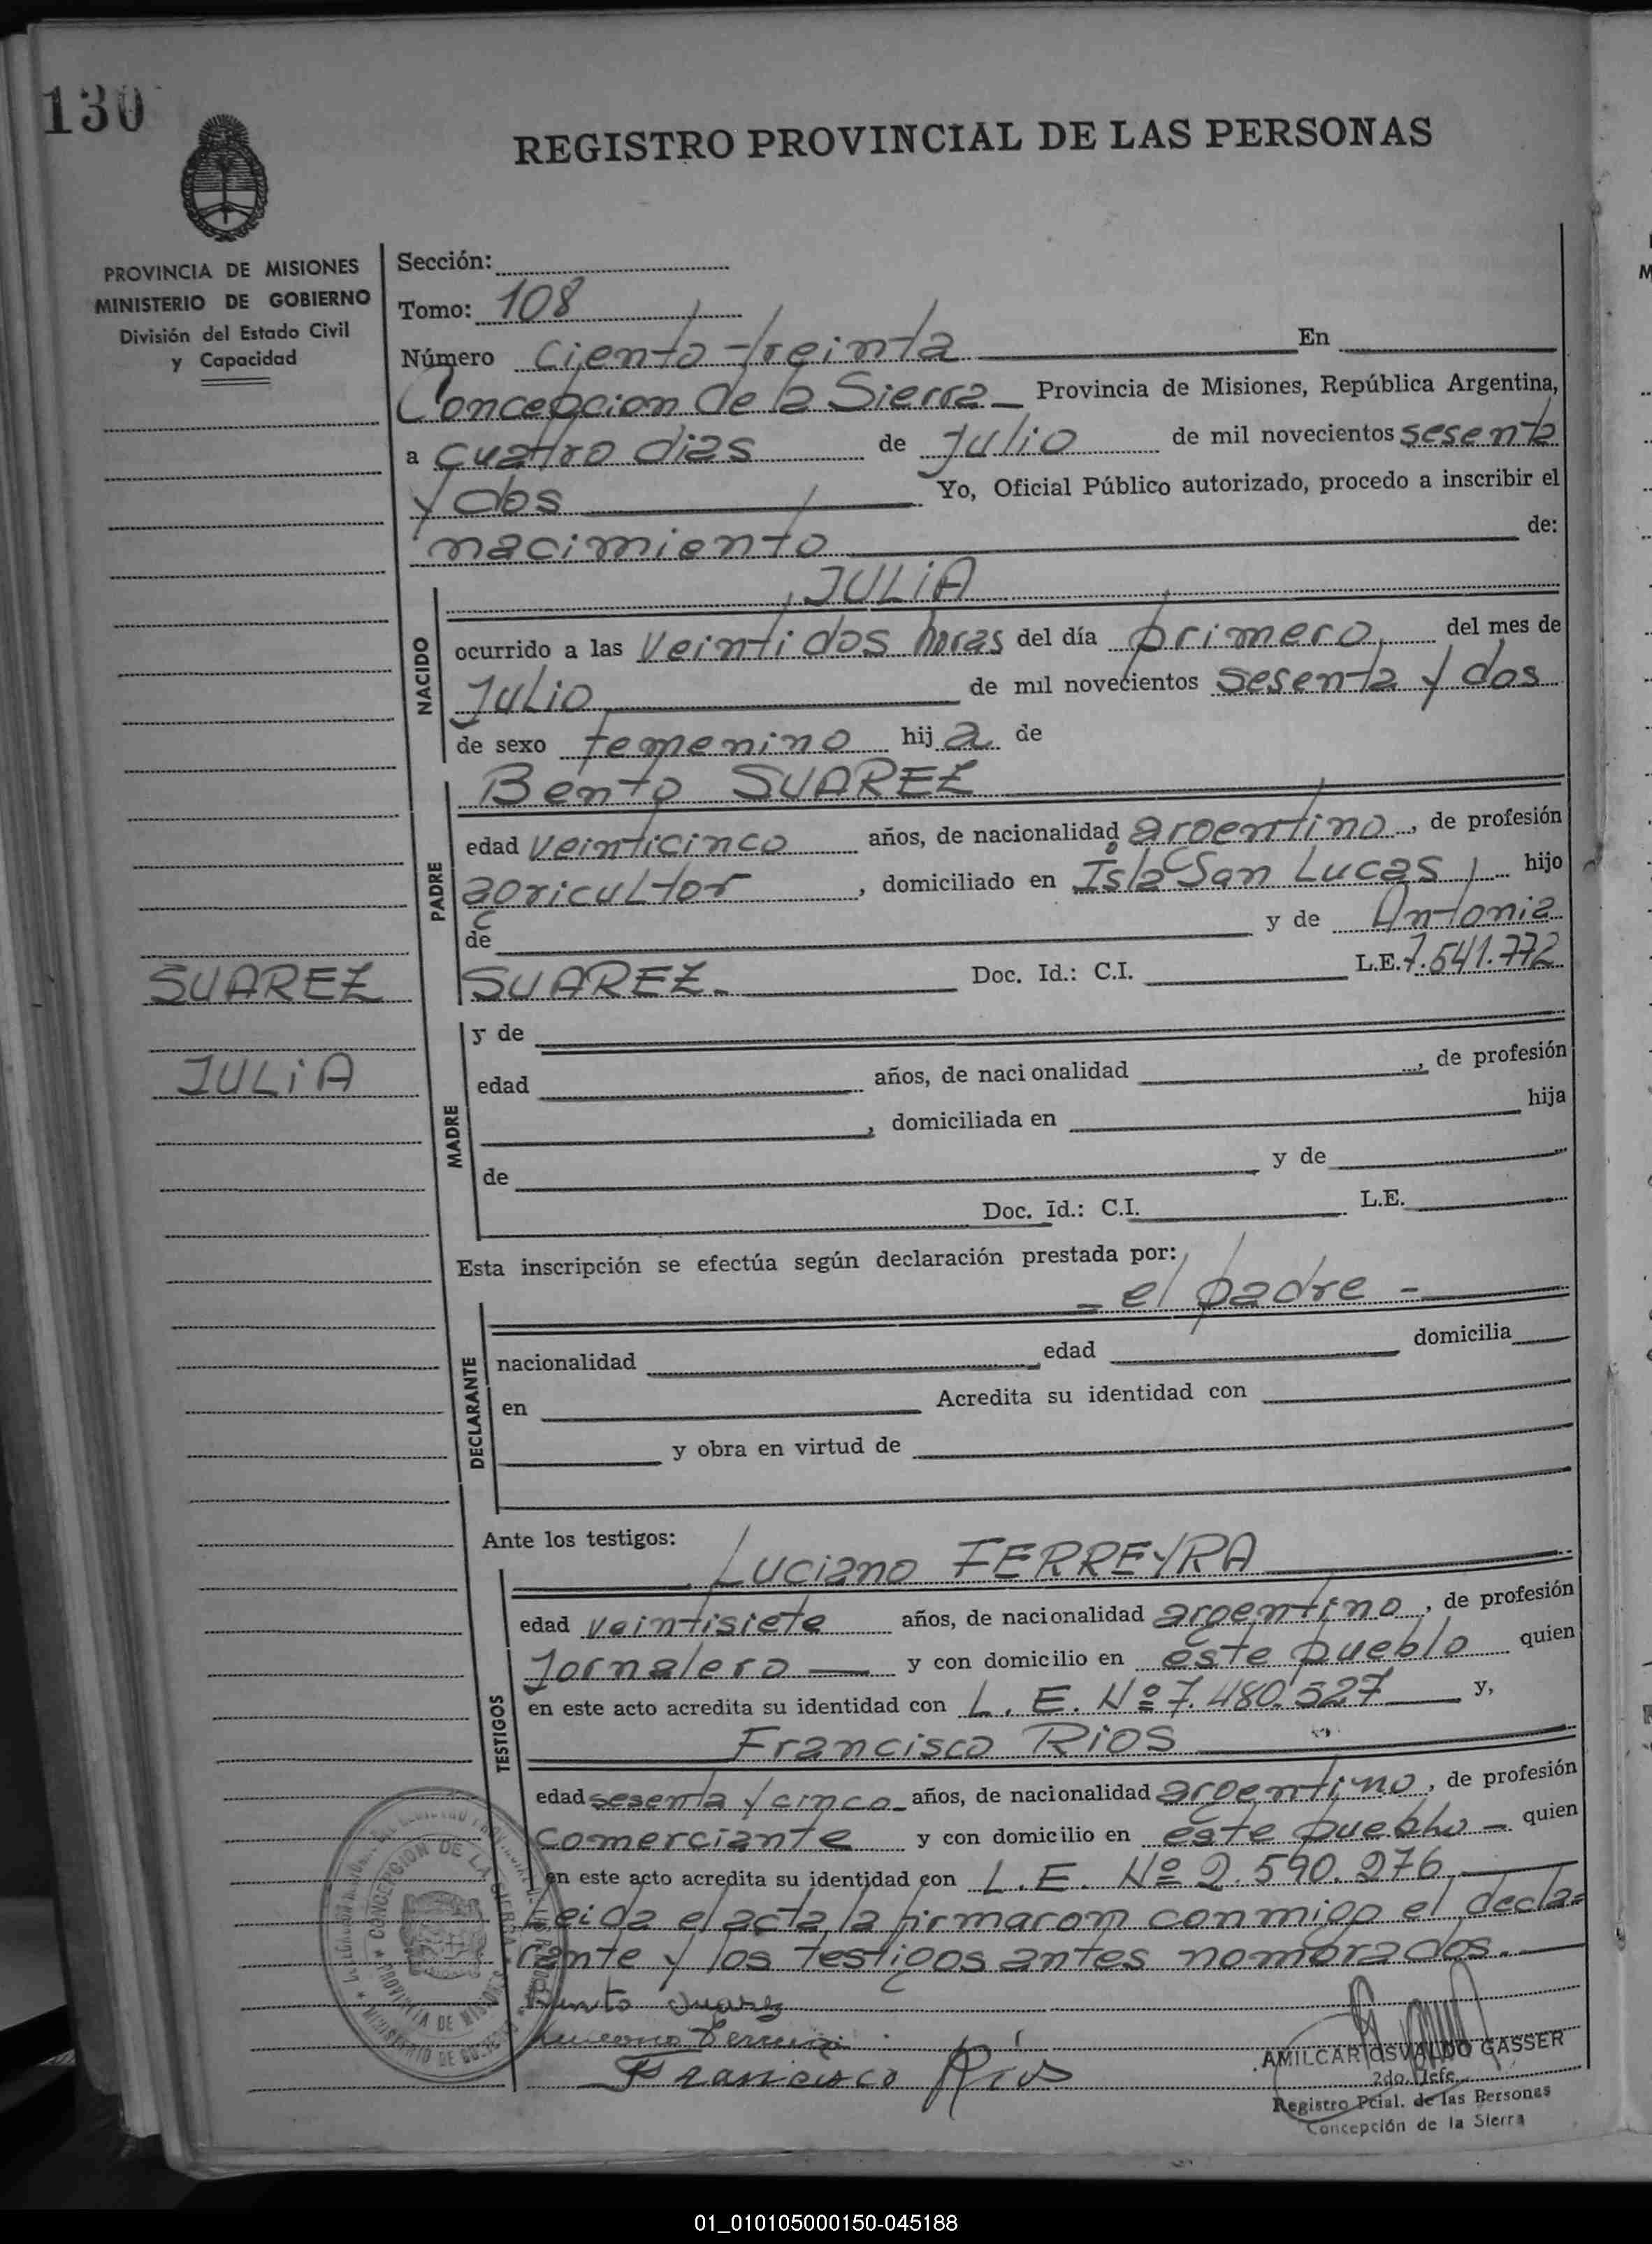 130
REGISTRO PROVINCIAL DE LAS PERSONAS
PROVINCIA DE MISIONES
MINISTERIO DE GOBIERNO
División del Estado Civil
y Capacidad
Sección:
Tomo: 108
Número ciento treinta En
Concepcion de la Sierra Provincia de Misiones, República Argentina,
a cuatro dias de Julio de mil novecientos sesenta
y dos Yo, Oficial Público autorizado, procedo a inscribir el
nacimiento de:
JULIA
NACIDO
ocurrido a las veintidos horas del día primero del mes de
Julio de mil novecientos sesenta y dos
de sexo femenino hija de
PADRE
Bento SUAREZ
edad veinticinco años, de nacionalidad argentino, de profesión
agricultor, domiciliado en Isla San Lucas, hijo
de y de Antonia
SUAREZ. Doc. Id.: C.I. L.E. 7.541.772
SUAREZ
JULIA
MADRE
y de
edad años, de nacionalidad, de profesión
, domiciliada en hija
de y de
Doc. Id.: C.I. L.E.
Esta inscripción se efectúa según declaración prestada por:
- el padre -
DECLARANTE
nacionalidad edad domicilia
en Acredita su identidad con
y obra en virtud de
Ante los testigos:
Luciano FERREYRA
TESTIGOS
edad veintisiete años, de nacionalidad argentino, de profesión
Jornalero y con domicilio en este pueblo quien
en este acto acredita su identidad con L. E. Nº 7.480.527 y,
Francisco RIOS
edad sesenta y cinco años, de nacionalidad argentino, de profesión
comerciante y con domicilio en este pueblo quien
en este acto acredita su identidad con L. E. Nº 2.590.276
Leida el acta la firmaron conmigo el decla=
rante y los testigos antes nombrados.
Suarez
Francisco Ríos
AMILCAR OSVALDO GASSER
2do. Jefe
Registro Pcial. de las Personas
Concepción de la Sierra
CONCEPCION DE LA SIERRA
PROVINCIA DE MISIONES
MINISTERIO DE GOBIERNO
01_010105000150-045188